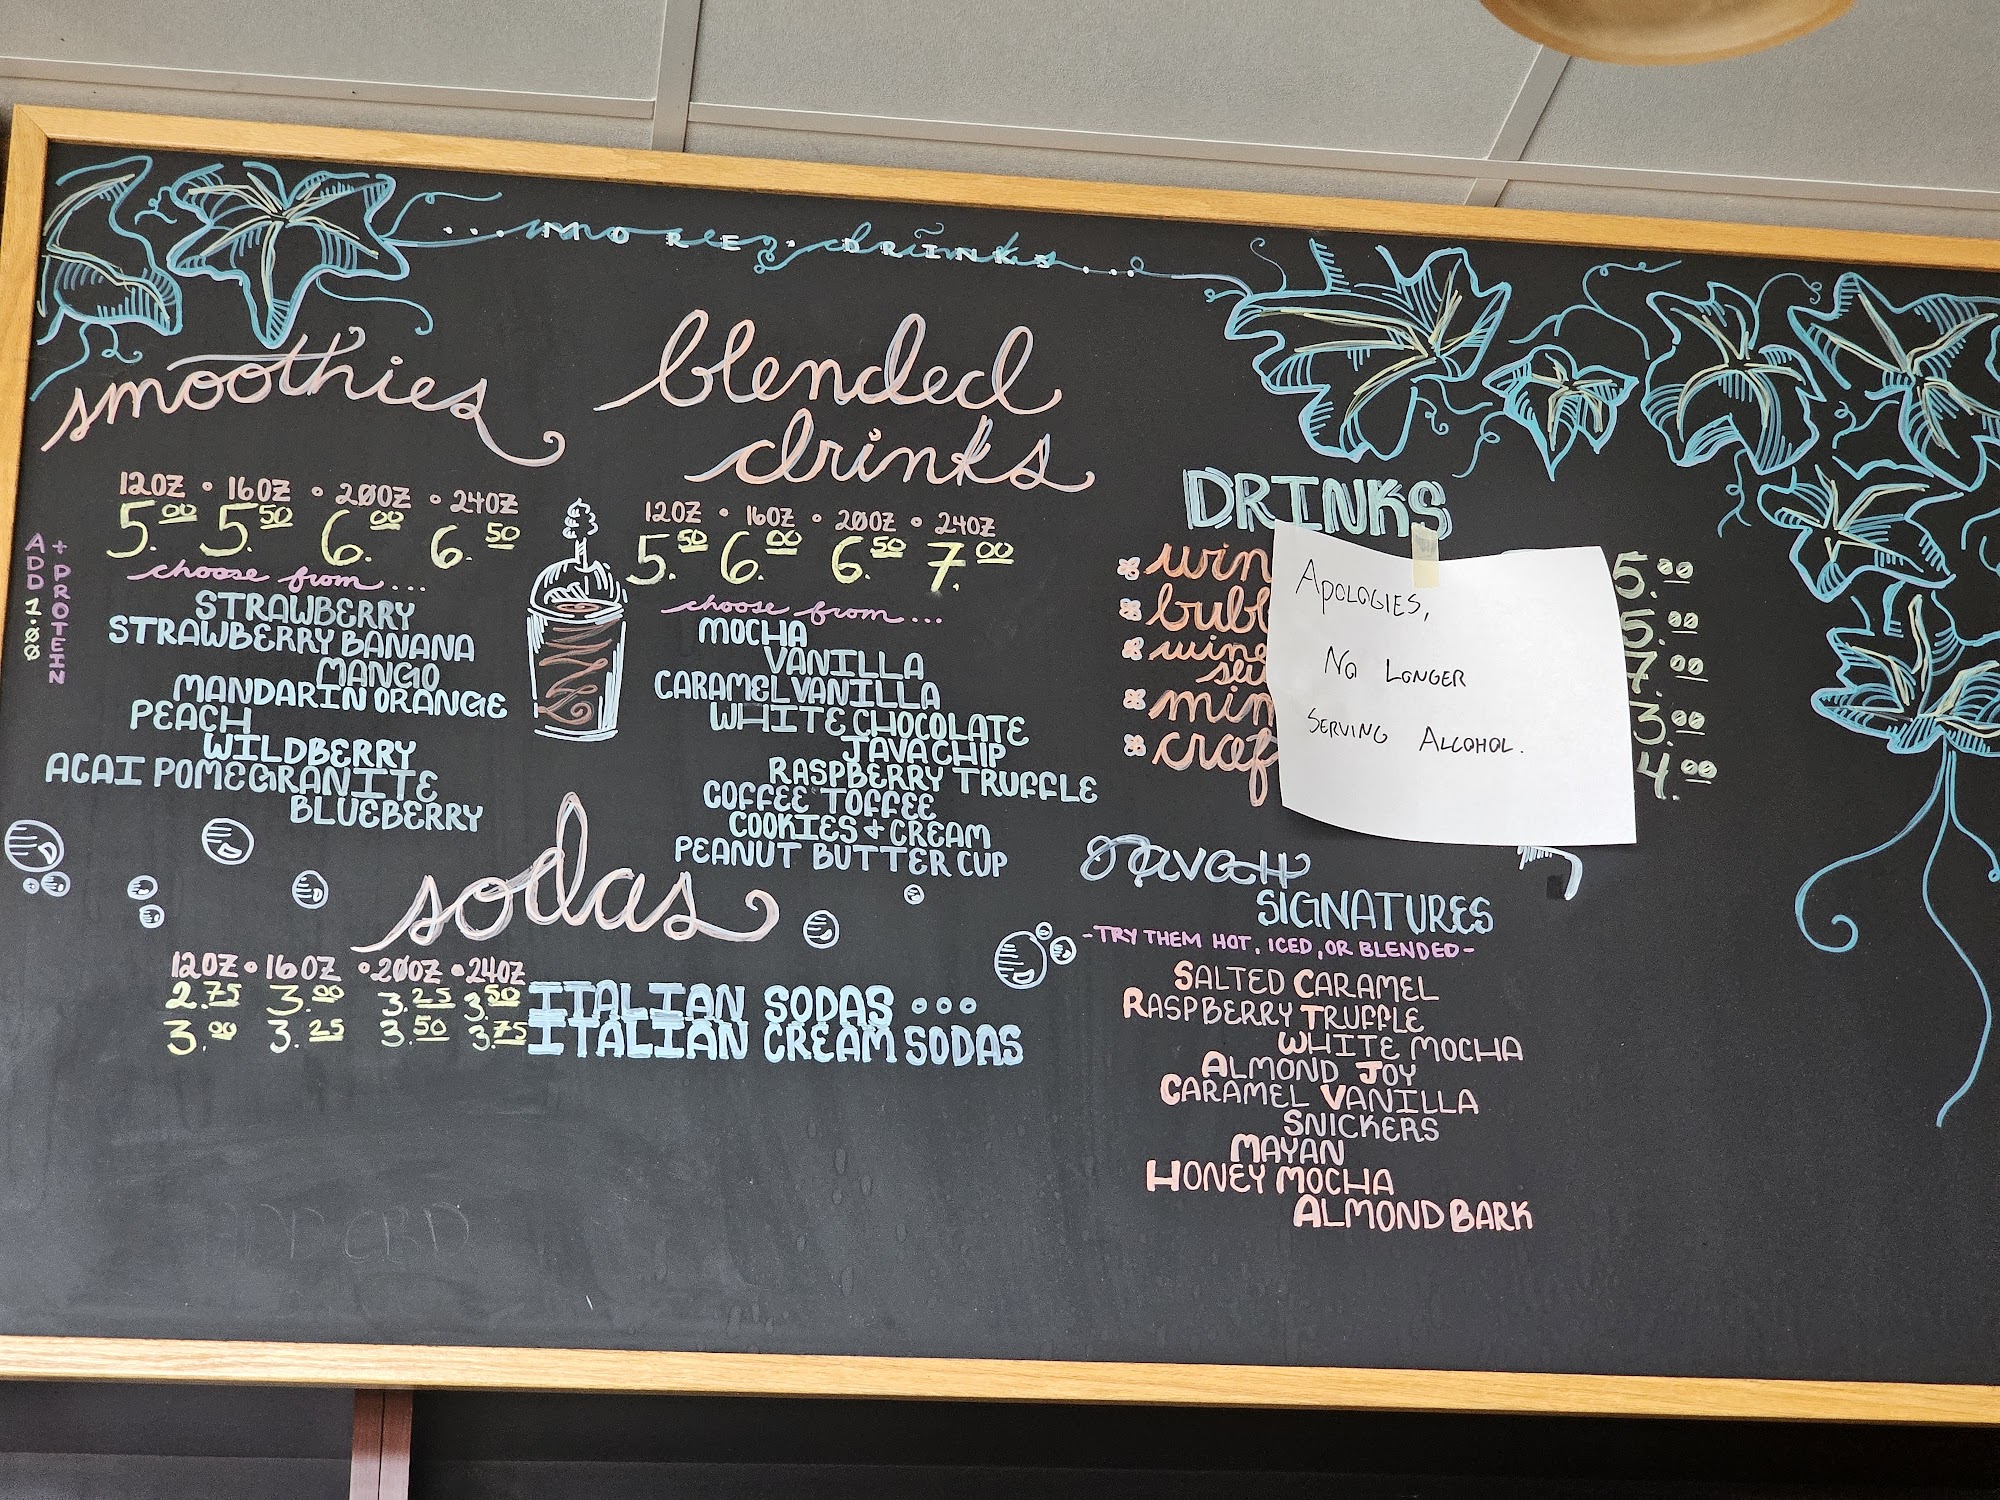 ...more drinks...
smoothies
12OZ • 16OZ • 20OZ • 24OZ
5.00 5.50 6.00 6.50
choose from...
STRAWBERRY
STRAWBERRY BANANA
MANGO
MANDARIN ORANGE
PEACH
WILDBERRY
ACAI POMEGRANITE
BLUEBERRY
ADD 1.00
+ PROTEIN
blended
drinks
12OZ • 16OZ • 20OZ • 24OZ
5.50 6.00 6.50 7.00
choose from...
MOCHA
VANILLA
CARAMEL VANILLA
WHITE CHOCOLATE
JAVA CHIP
RASPBERRY TRUFFLE
COFFEE TOFFEE
COOKIES + CREAM
PEANUT BUTTER CUP
sodas
12OZ • 16OZ • 20OZ • 24OZ
2.75 3.00 3.25 3.50 ITALIAN SODAS ...
3.00 3.25 3.50 3.75 ITALIAN CREAM SODAS
DRINKS
5.00
5.00
7.00
3.00
4.00
APOLOGIES,
NO LONGER
SERVING ALCOHOL.
SIGNATURES
-TRY THEM HOT, ICED, OR BLENDED-
SALTED CARAMEL
RASPBERRY TRUFFLE
WHITE MOCHA
ALMOND JOY
CARAMEL VANILLA
SNICKERS
MAYAN
HONEY MOCHA
ALMOND BARK